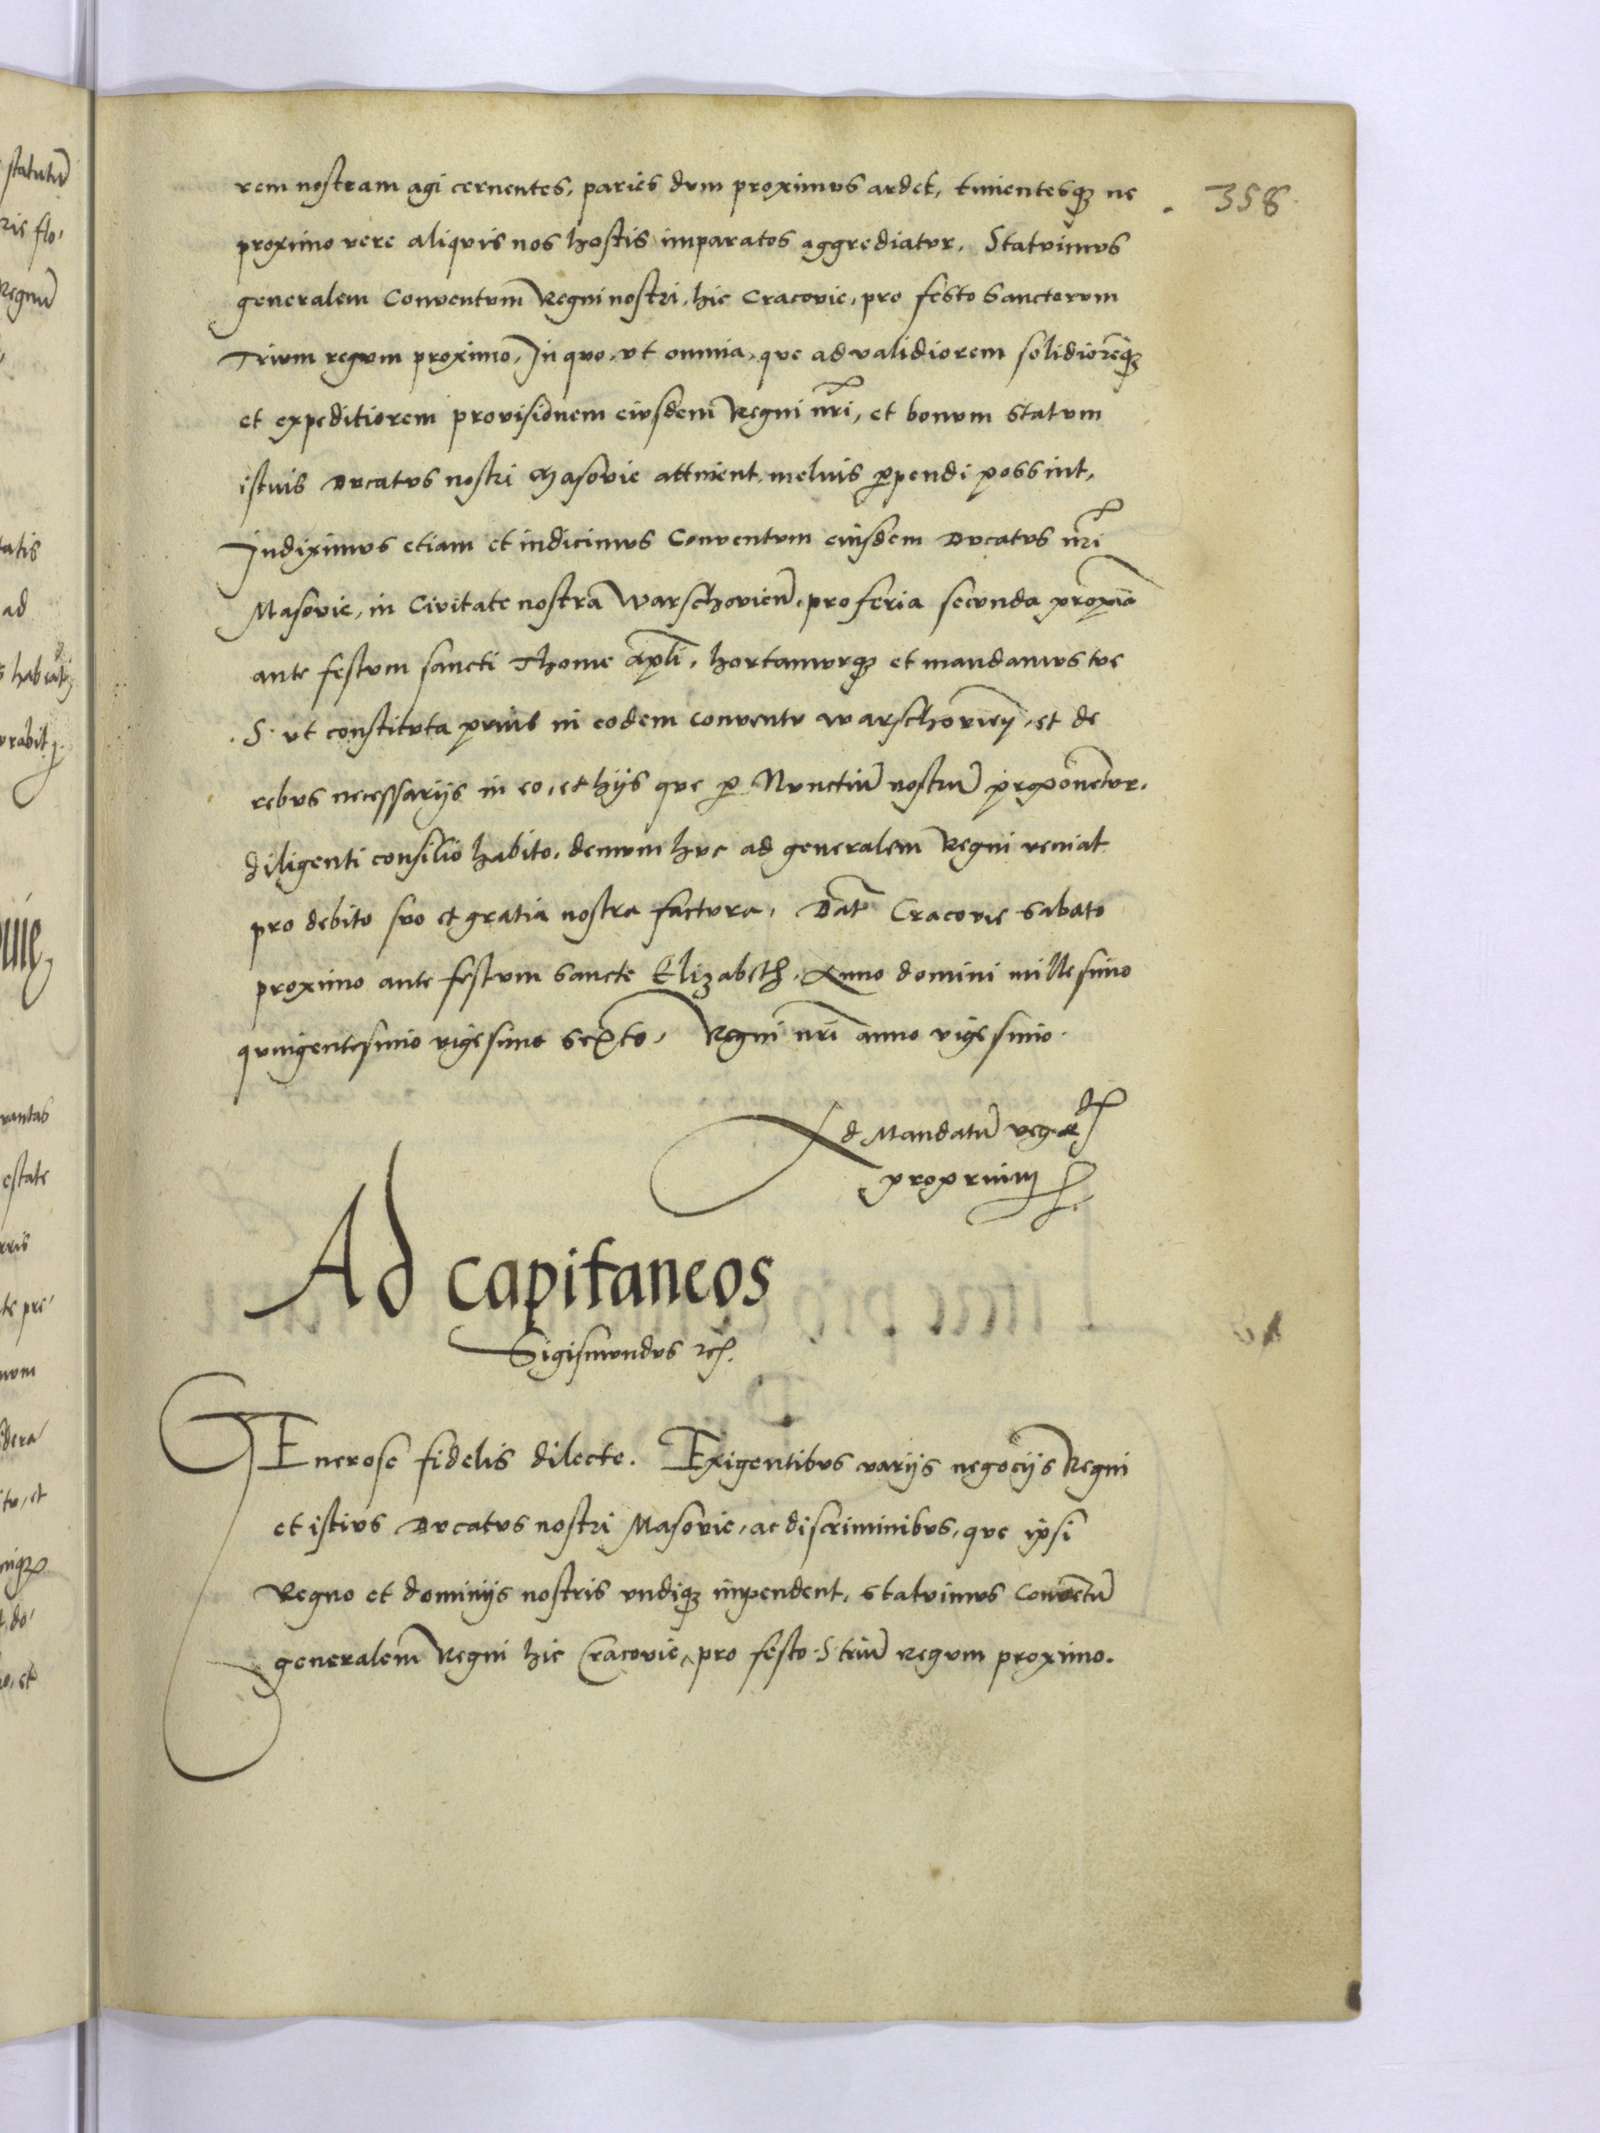 358
rem nostram agi cernentes, paries dum proximus ardet, timentesq₃ ne
proximo vere aliquis nos hostis imparatos aggrediatur, Statuimus
generalem Conuentum Regni nostri, hic Cracovie, pro festo Sanctorum
Trium regum proximo, In quo, ut omnia, que ad validiorem solidiorẽq₃
et expeditiorem provisionem eiusdem Regni nr̃i, et bonum statum
istius Ducatus nostri Masovie attinent, melius ꝑpendi possint,
Indiximus etiam et indicimus Conuentum eiusdem Ducatus nr̃i
Masovie, in Civitate nostra Warschovieñ, pro feria secunda proxiã
ante festum sancti Thome apl̃i, hortamurq₃ et mandamus tue
.S. ut constituta prius in eodem conventu warschovieñ, et de
rebus necessarijs in eo, et hijs que ꝑ Nunctiũ nostrũ proponẽtur,
diligenti consilio habito, demum huc ad generalem Regni veniat
pro debito suo et gratia nostra factura, Dat̃ Cracovie Sabato
proximo ante festum Sancte Elizabeth, Anno domini millesimo
quingentesimo vigesimo sexto, Regni nr̃i anno vigesimo.
Ad Mandatũ reg
proprium
Ad capitaneos
Sigismundus rex.
GEnerose fidelis dilecte. Exigentibus varijs negocijs Regni
et istius Ducatus nostri Masovie, ac discriminibus, que ipsi
Regno et dominijs nostris undiq₃ impendent, statuimus Conuẽtũ
generalem Regni hic Cracovie, pro festo .S. triũ regum proximo.